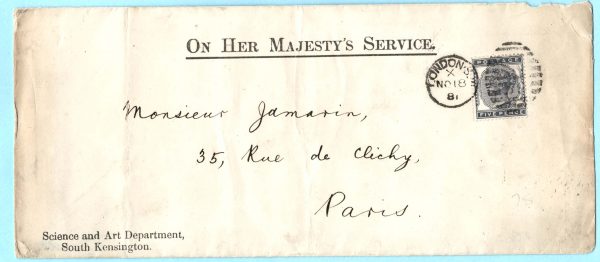 ON HER MAJESTY'S SERVICE.
LONDON·S
X
NO 18
81
POSTAGE
FIVE PENCE
Monsieur Jamarin,
35, Rue de Clichy,
Paris.
Science and Art Department,
South Kensington.